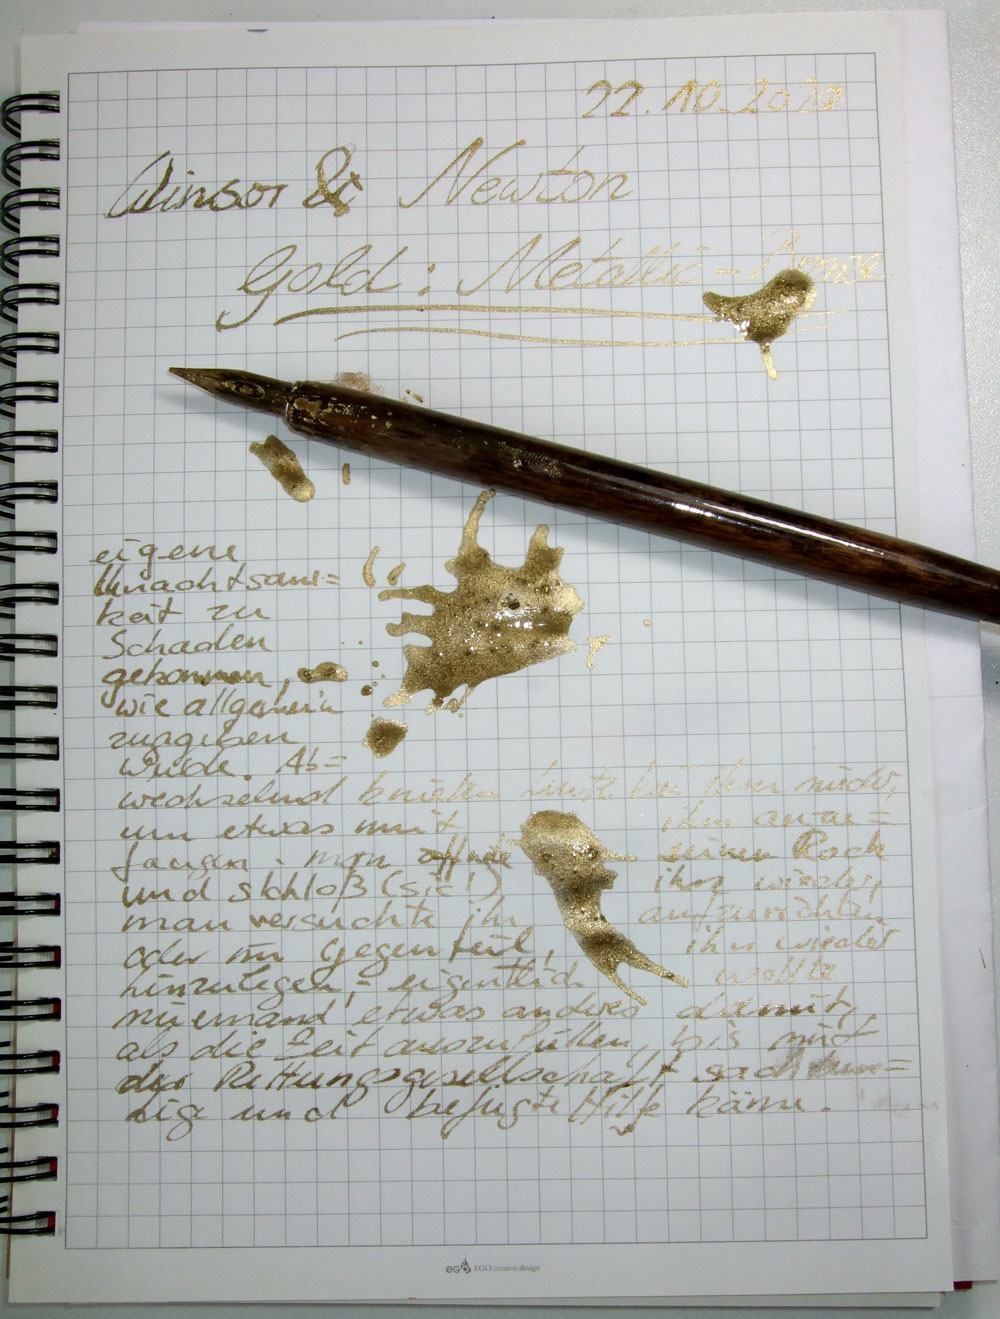 22.10.20
Winsor & Newton
Gold: Metallic-
eigene
Unachtsam=
keit zu
Schaden
gekommen,
wie allgemein
zugegeben
wurde. Ab=
wechselnd knieten Leute bei ihm nieder,
um etwas mit ihm anzu=
fangen. man öffnete seinen Rock
und schloß (sic!) ihn wieder,
man versuchte ihn aufzurichten
oder im Gegenteil, ihn wieder
hinzulegen; - eigentlich wollte
niemand etwas anderes damit,
als die Zeit auszufüllen, bis mit
der Rettungsgesellschaft sachkun=
dige und befugte Hilfe käme.
EGO EGO creative design